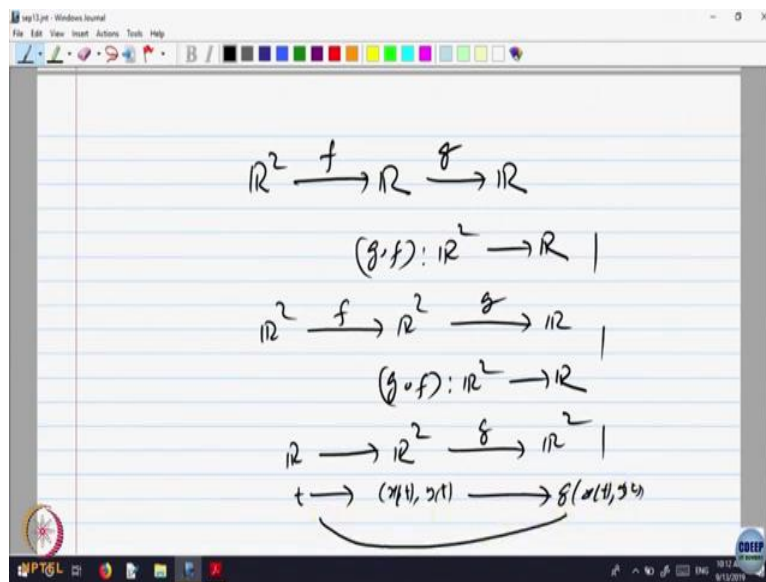 sep13.jnt - Windows Journal
File Edit View Insert Actions Tools Help
B I
ℝ² —f→ ℝ —g→ ℝ
(g∘f): ℝ² → ℝ |
ℝ² —f→ ℝ² —g→ ℝ |
(g∘f): ℝ² → ℝ
ℝ → ℝ² —g→ ℝ² |
t → (x(t), y(t)) → g(x(t), y(t))
NPTEL
CDEEP
ENG
10:12
9/13/2019